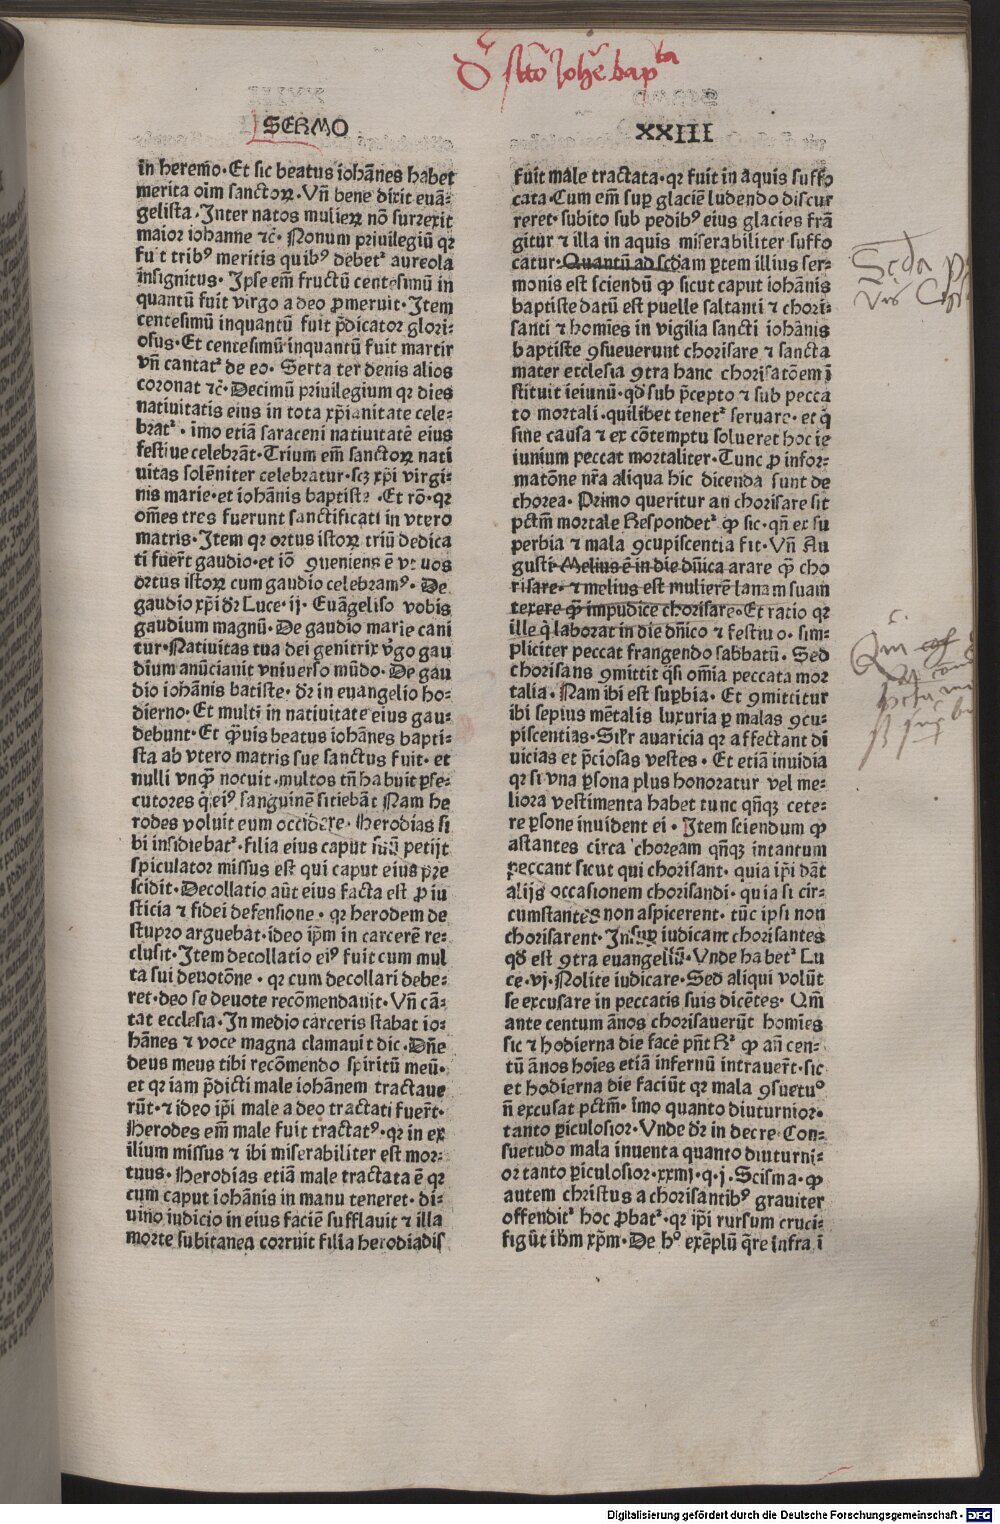 SERMO
XXIII
in heremo. Et sic beatus iohānes habet
merita oīm sanctoꝝ. Vn̄ bene dixit euā⸗
gelista. Inter natos mulieꝝ nō surrexit
maior iohanne ⁊c̄. Nonum priuilegiū qꝛ
fuit tribꝰ meritis quibꝰ debetᷣ aureola
insignitus. Ipse em̄ fructū centesimū in
quantū fuit virgo a deo ꝓmeruit. Item
centesimū inquantū fuit p̄dicator glori⸗
osus. Et centesimū inquantū fuit martir
vn̄ cantatᷣ de eo. Serta ter denis alios
coronat ⁊c̄. Decimū priuilegium qꝛ dies
natiuitatis eius in tota xp̄ianitate cele⸗
bratᷣ. imo etiā saraceni natiuitatē eius
festiue celebrāt. Trium em̄ sanctoꝝ nati
uitas solēniter celebratur. scꝫ xp̄i virgi⸗
nis marie. et iohānis baptiste. Et rō. qꝛ
om̄es tres fuerunt sanctificati in vtero
matris. Item qꝛ ortus istoꝝ triū dedica
ti fuer̄t gaudio. et iō ꝯueniens ē vt nos
ortus istoꝝ cum gaudio celebramꝰ. De
gaudio xp̄i dꝛ Luce. ij. Euāgeliso vobis
gaudium magnū. De gaudio marie cani
tur. Natiuitas tua dei genitrix v̓go gau
dium anūciauit vniuerso mūdo. De gau
dio iohānis batiste. dꝛ in euangelio ho⸗
dierno. Et multi in natiuitate eius gau⸗
debunt. Et q̄uis beatus iohānes bapti⸗
sta ab vtero matris sue sanctus fuit. et
nulli vnqꝫ nocuit. multos tn̄ habuit ꝑse⸗
cutores q̇ eiꝰ sanguinē sitiebāt Nam he
rodes voluit eum occidere. Herodias si
bi insidiebatᷣ. filia eius caput suū petijt
spiculator missus est qui caput eius pre
scidit. Decollatio aūt eius facta est ꝓ iu
sticia ⁊ fidei defensione. qꝛ herodem de
stupro arguebat. ideo ip̄m in carcerē re⸗
clusit. Item decollatio eiꝰ fuit cum mul
ta sui deuotōne. qꝛ cum decollari debe⸗
ret. deo se deuote recōmendauit. Vn̄ cā⸗
tat ecclesia. In medio carceris stabat io⸗
hānes ⁊ voce magna clamauit dic. Dn̄e
deus meus tibi recōmendo spiritū meū.
et qꝛ iam p̄dicti male iohānem tractaue
rūt. ⁊ ideo ip̄i male a deo tractati fuer̄t.
Herodes em̄ male fuit tractatꝰ. qꝛ in ex
ilium missus ⁊ ibi miserabiliter est mor⸗
tuus. Herodias etiā male tractata ē qꝛ
cum caput iohānis in manu teneret. di⸗
uino iudicio in eius faciē sufflauit ⁊ illa
morte subitanea corruit filia herodiadis
fuit male tractata. qꝛ fuit in aquis suffo
cata. Cum em̄ suꝑ glaciē ludendo discur
reret. subito sub pedibꝰ eius glacies frā
gitur ⁊ illa in aquis miserabiliter suffo
catur. Quantū ad scd̄am ꝑtem illius ser⸗
monis est sciendū ꝙ sicut caput iohānis
baptiste datū est puelle saltanti ⁊ chori⸗
santi ⁊ homīes in vigilia sancti iohānis
baptiste ꝯsueuerunt chorisare ⁊ sancta
mater ecclesia ꝯtra hanc chorisatōem ī
stituit ieiunū. qd̓ sub p̄cepto ⁊ sub pecca
to mortali. quilibet tenetᷣ seruare. et q̇
sine causa ⁊ ex cōtemptu solueret hoc ie
iunium peccat mortaliter. Tunc ꝓ infor⸗
matōne nr̄a aliqua hic dicenda sunt de
chorea. Primo queritur an chorisare sit
pctm̄ mortale Respondetᷣ ꝙ sic. qn̄ ex su
perbia ⁊ mala ꝯcupiscentia fit. Vn̄ Au
gusti. Melius ē in die dn̄ica arare qꝫ cho
risare. ⁊ melius est mulierē lanam suam
texere qꝫ impudice chorisare. Et ratio qꝛ
ille q̇ laborat in die dn̄ico ⁊ festiuo. sim⸗
pliciter peccat frangendo sabbatū. Sed
chorisans ꝯmittit q̄si om̄ia peccata mor
talia. Nam ibi est suꝑbia. Et ꝯmittitur
ibi sepius mētalis luxuria ꝑ malas ꝯcu⸗
piscentias. Silr̄ auaricia qꝛ affectant di
uicias et p̄ciosas vestes. Et etiā inuidia
qꝛ si vna ꝑsona plus honoratur vel me⸗
liora vestimenta habet tunc qn̄qꝫ cete⸗
re ꝑsone inuident ei. Item sciendum ꝙ
astantes circa choream qn̄qꝫ intantum
peccant sicut qui chorisant. quia ip̄i dāt
alijs occasionem chorisandi. quia si cir⸗
cumstantes non aspicerent. tūc ipsi non
chorisarent. Insuꝑ iudicant chorisantes
qd̓ est ꝯtra euangeliū. Vnde habetᷣ Lu
ce. vj. Nolite iudicare. Sed aliqui volūt
se excusare in peccatis suis dicētes. Qm̄
ante centum ānos chorisauerūt homīes
sic ⁊ hodierna die facē pn̄t Rᷣ ꝙ an̄ cen⸗
tū ānos hoīes etiā infernū intrauer̄t. sic
et hodierna die faciūt qꝛ mala ꝯsuetuº
n̄ excusat pctm̄. imo quanto diuturnior.
tanto ꝑiculosior. Vnde dꝛ in decre. Con⸗
suetudo mala inuenta quanto diuturni⸗
or tanto ꝑiculosior. xxiiij. q. j. Scisma. ꝙ
autem christus a chorisantibꝰ grauiter
offenditᷣ hoc ꝓbatᷣ. qꝛ ip̄i rursum cruci⸗
figūt ih̄m xp̄m. De hº exēplū q̄re infra ī
Digitalisierung gefördert durch die Deutsche Forschungsgemeinschaft - DFG